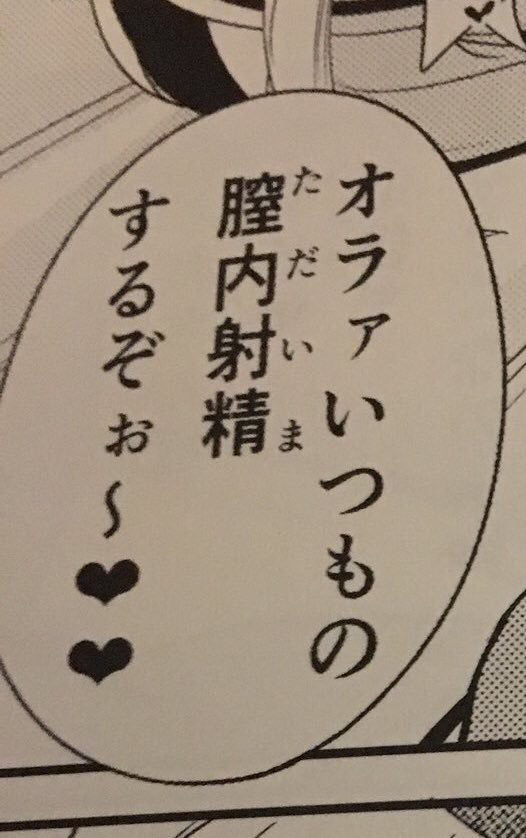 オラァいつもの
膣内射精
ただいま
するぞぉ~❤❤